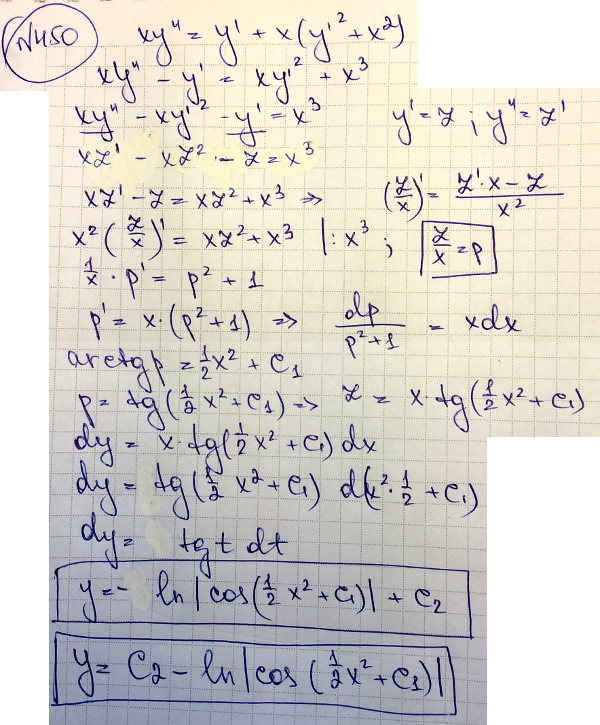 N450
xy" = y' + x(y'² + x²)
xy" - y' = xy'² + x³
xy" - xy'² - y' = x³
y' = z ; y" = z'
xz' - xz² - z = x³
xz' - z = xz² + x³ ⇒ (z/x)' = (z'·x - z)/x²
x²(z/x)' = xz² + x³ |: x³ ; z/x = p
1/x · p' = p² + 1
p' = x·(p² + 1) ⇒ dp/(p² + 1) = xdx
arctg p = 1/2 x² + C₁
p = tg(1/2 x² + C₁) ⇒ z = x·tg(1/2 x² + C₁)
dy = x·tg(1/2 x² + C₁) dx
dy = tg(1/2 x² + C₁) d(x²·1/2 + C₁)
dy = tg t dt
y = - ln|cos(1/2 x² + C₁)| + C₂
y = C₂ - ln|cos(1/2 x² + C₁)|